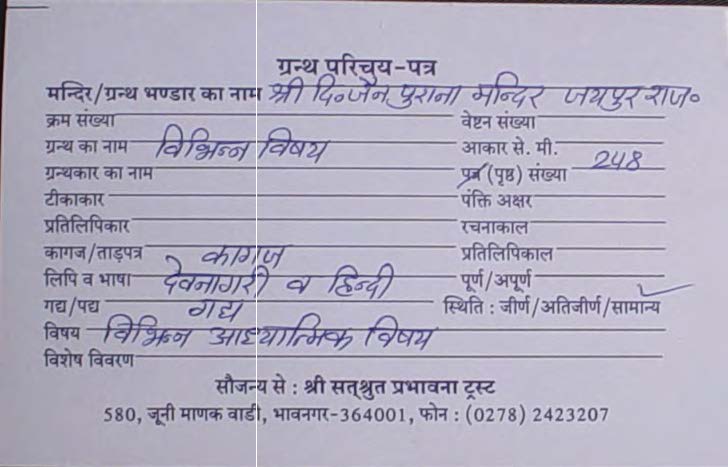 ग्रन्थ परिचय-पत्र
मन्दिर/ग्रन्थ भण्डार का नाम श्री दि॰जैन पुराना मन्दिर जयपुर राज॰
क्रम संख्या वेष्टन संख्या
ग्रन्थ का नाम विभिन्न विषय आकार से. मी.
ग्रन्थकार का नाम पत्र (पृष्ठ) संख्या 248
टीकाकार पंक्ति अक्षर
प्रतिलिपिकार रचनाकाल
कागज/ताड़पत्र कागज प्रतिलिपिकाल
लिपि व भाषा देवनागरी व हिन्दी पूर्ण/अपूर्ण
गद्य/पद्य गद्य स्थिति : जीर्ण/अतिजीर्ण/सामान्य
विषय विभिन्न आध्यात्मिक विषय
विशेष विवरण
सौजन्य से : श्री सत्श्रुत प्रभावना ट्रस्ट
580, जूनी माणक वाडी, भावनगर-364001, फोन : (0278) 2423207